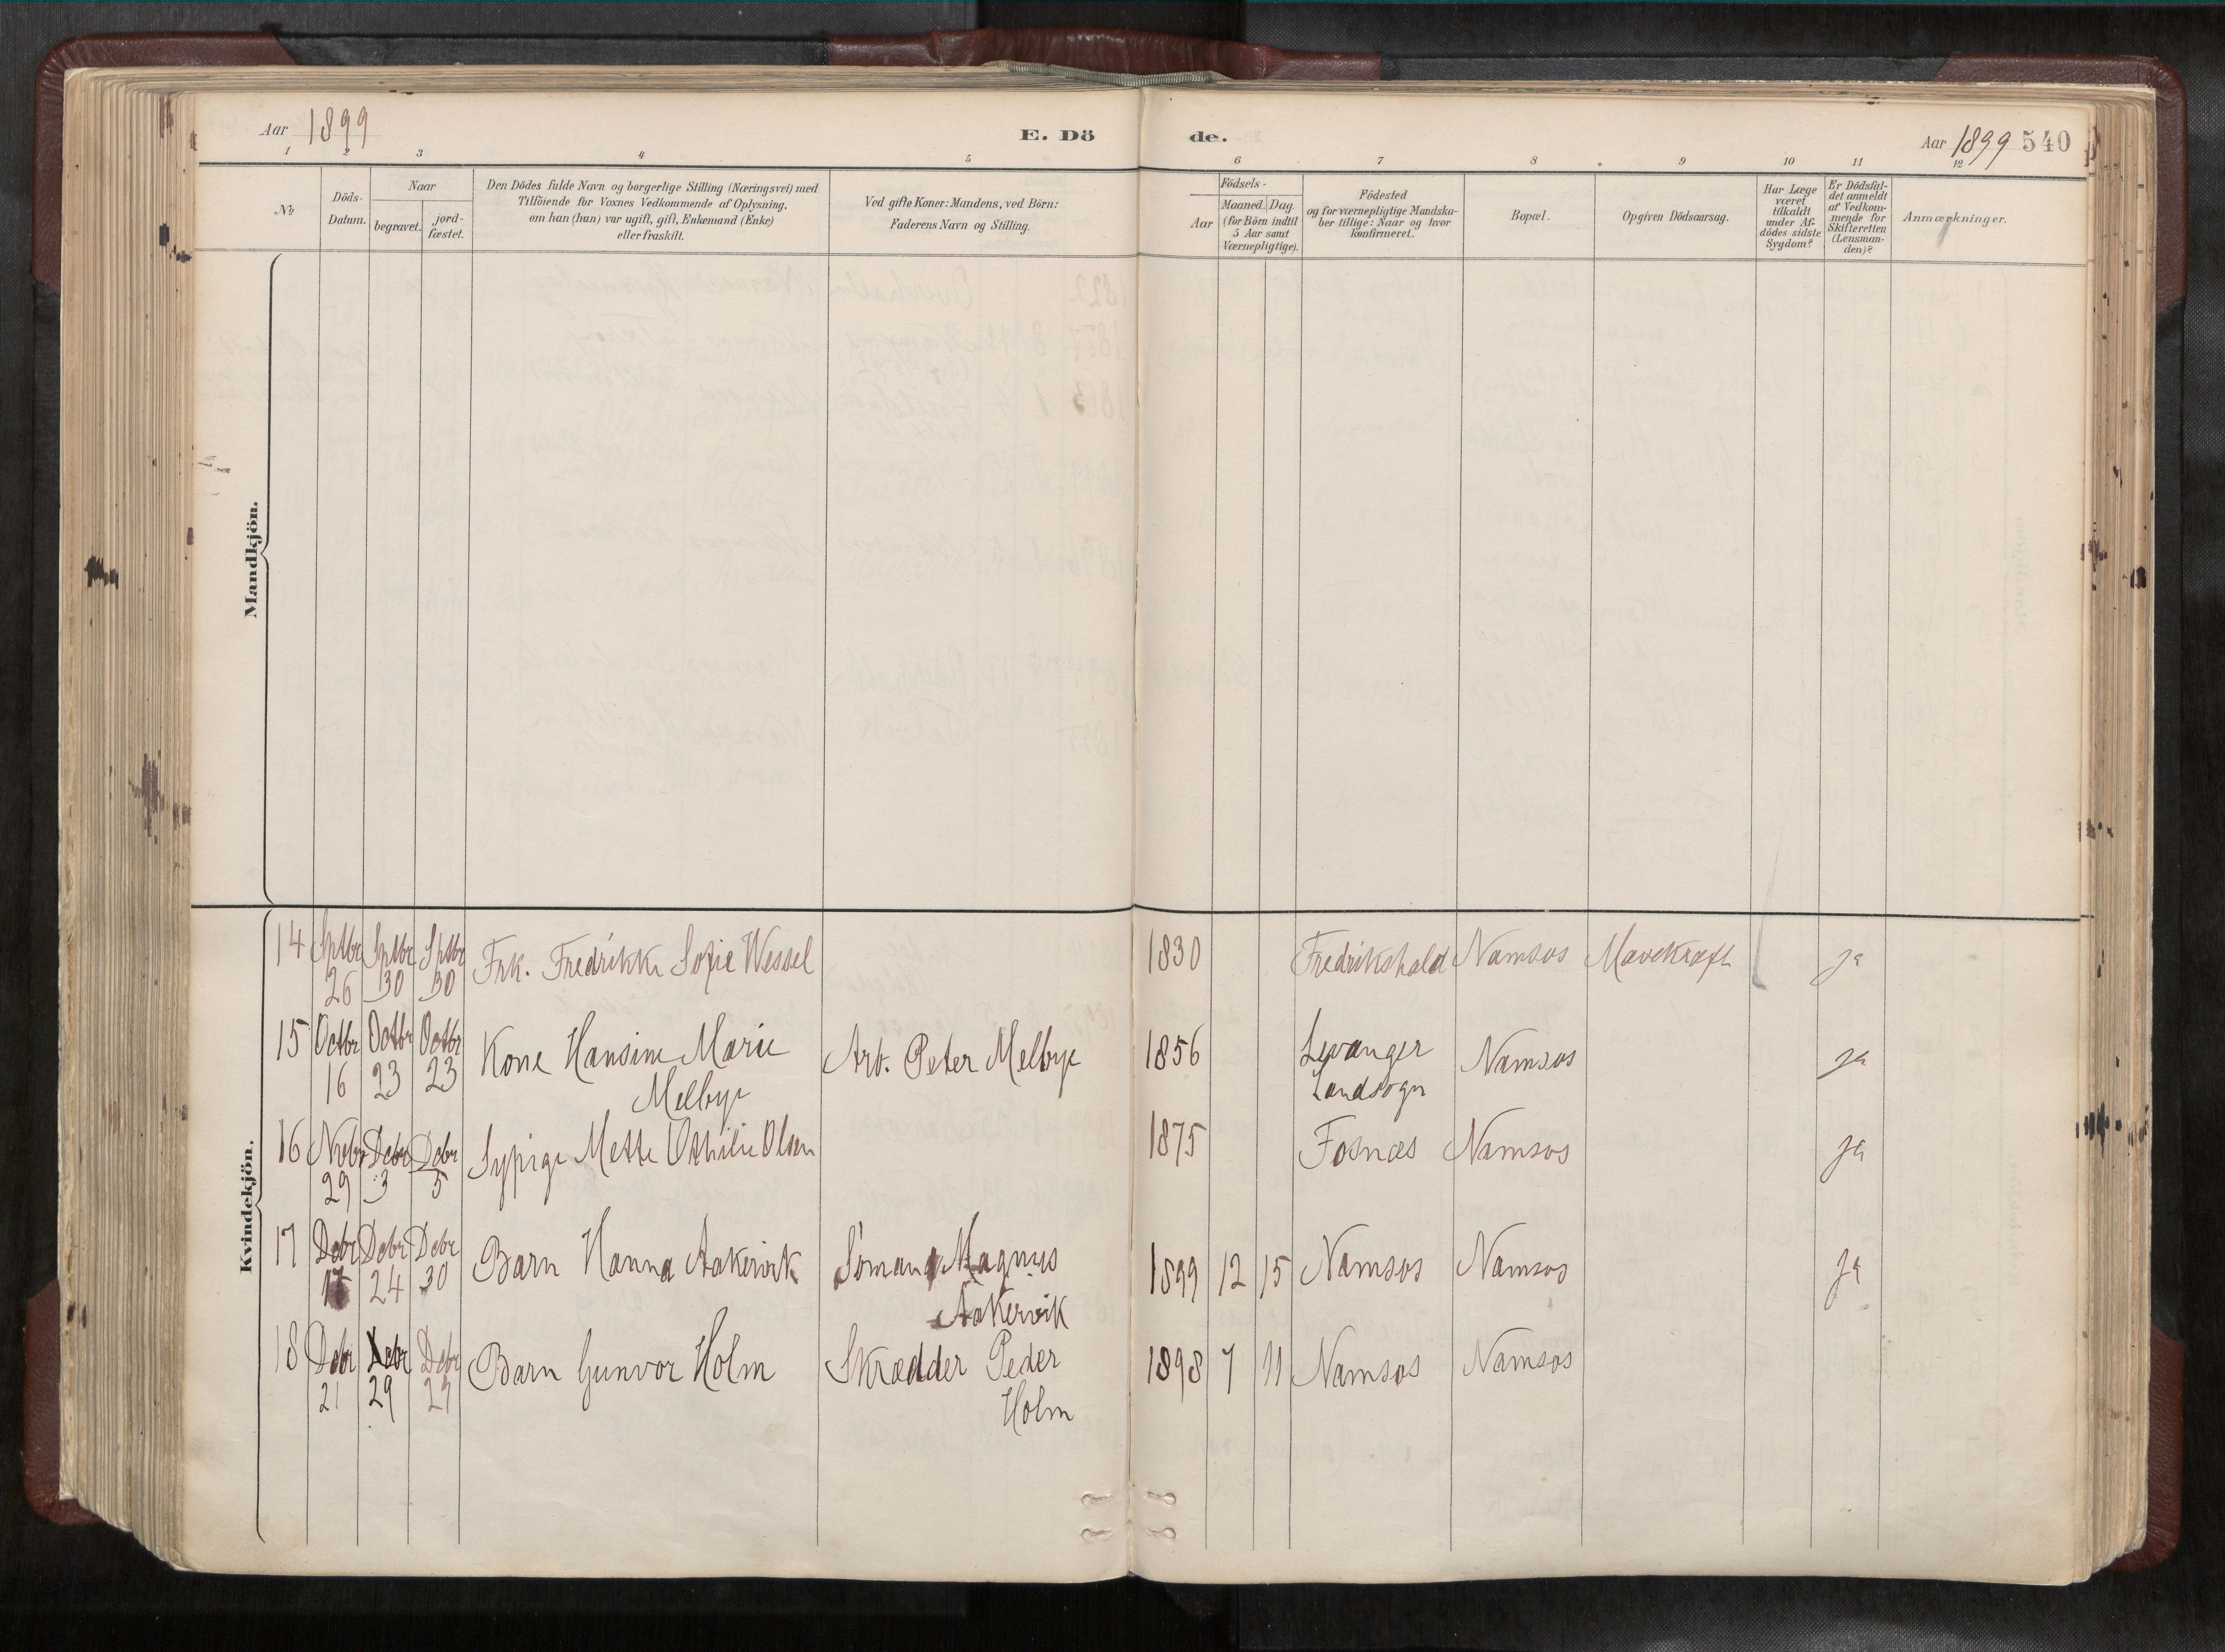 Aar 1899 E. Dö de. Aar 1899 540
1 2 3 4 5 6 7 8 9 10 11 12
No
Döds-
Datum.
Naar
begravet.
jord-
fæstet.
Den Dödes fulde Navn og borgerlige Stilling (Næringsvei) med
Tilföiende for Voxnes Vedkommende af Oplysning,
om han (hun) var ugift, gift, Enkemand (Enke)
eller fraskilt.
Ved gifte Koner: Mandens, ved Börn:
Faderens Navn og Stilling.
Födsels-
Aar
Maaned. Dag.
(for Börn indtil
5 Aar samt
Værnepligtige).
Födested
og for værnepligtige Mandska-
ber tillige: Naar og hvor
konfirmeret.
Bopæl.
Opgiven Dödsaarsag.
Har Læge
været
tilkaldt
under Af-
dödes sidste
Sygdom?
Er Dödsfal-
det anmeldt
af Vedkom-
mende for
Skifteretten
(Lensman-
den)?
Anmærkninger.
Mandkjön.
Kvindekjön.
14 Sptbr Sptbr Sptbr Frk. Fredrikke Sofie Wessel 1830 Fredrikshald Namsos Mavekræft ja
26 30 30
15 Octbr Octbr Octbr Kone Hansine Marie Arb. Peter Melbye 1856 Levanger Namsos ja
16 23 23 Melbye Landsogn
16 Novbr Debr Debr Sypige Mette Othilie Olsen 1875 Fosnæs Namsos ja
29 3 5
17 Debr Debr Debr Barn Hanna Aakervik Sömand Magnus 1899 12 15 Namsos Namsos ja
24 30 Aakervik
18 Debr Debr Debr Barn Gunvor Holm Skrædder Peder 1898 7 11 Namsos Namsos
21 29 29 Holm